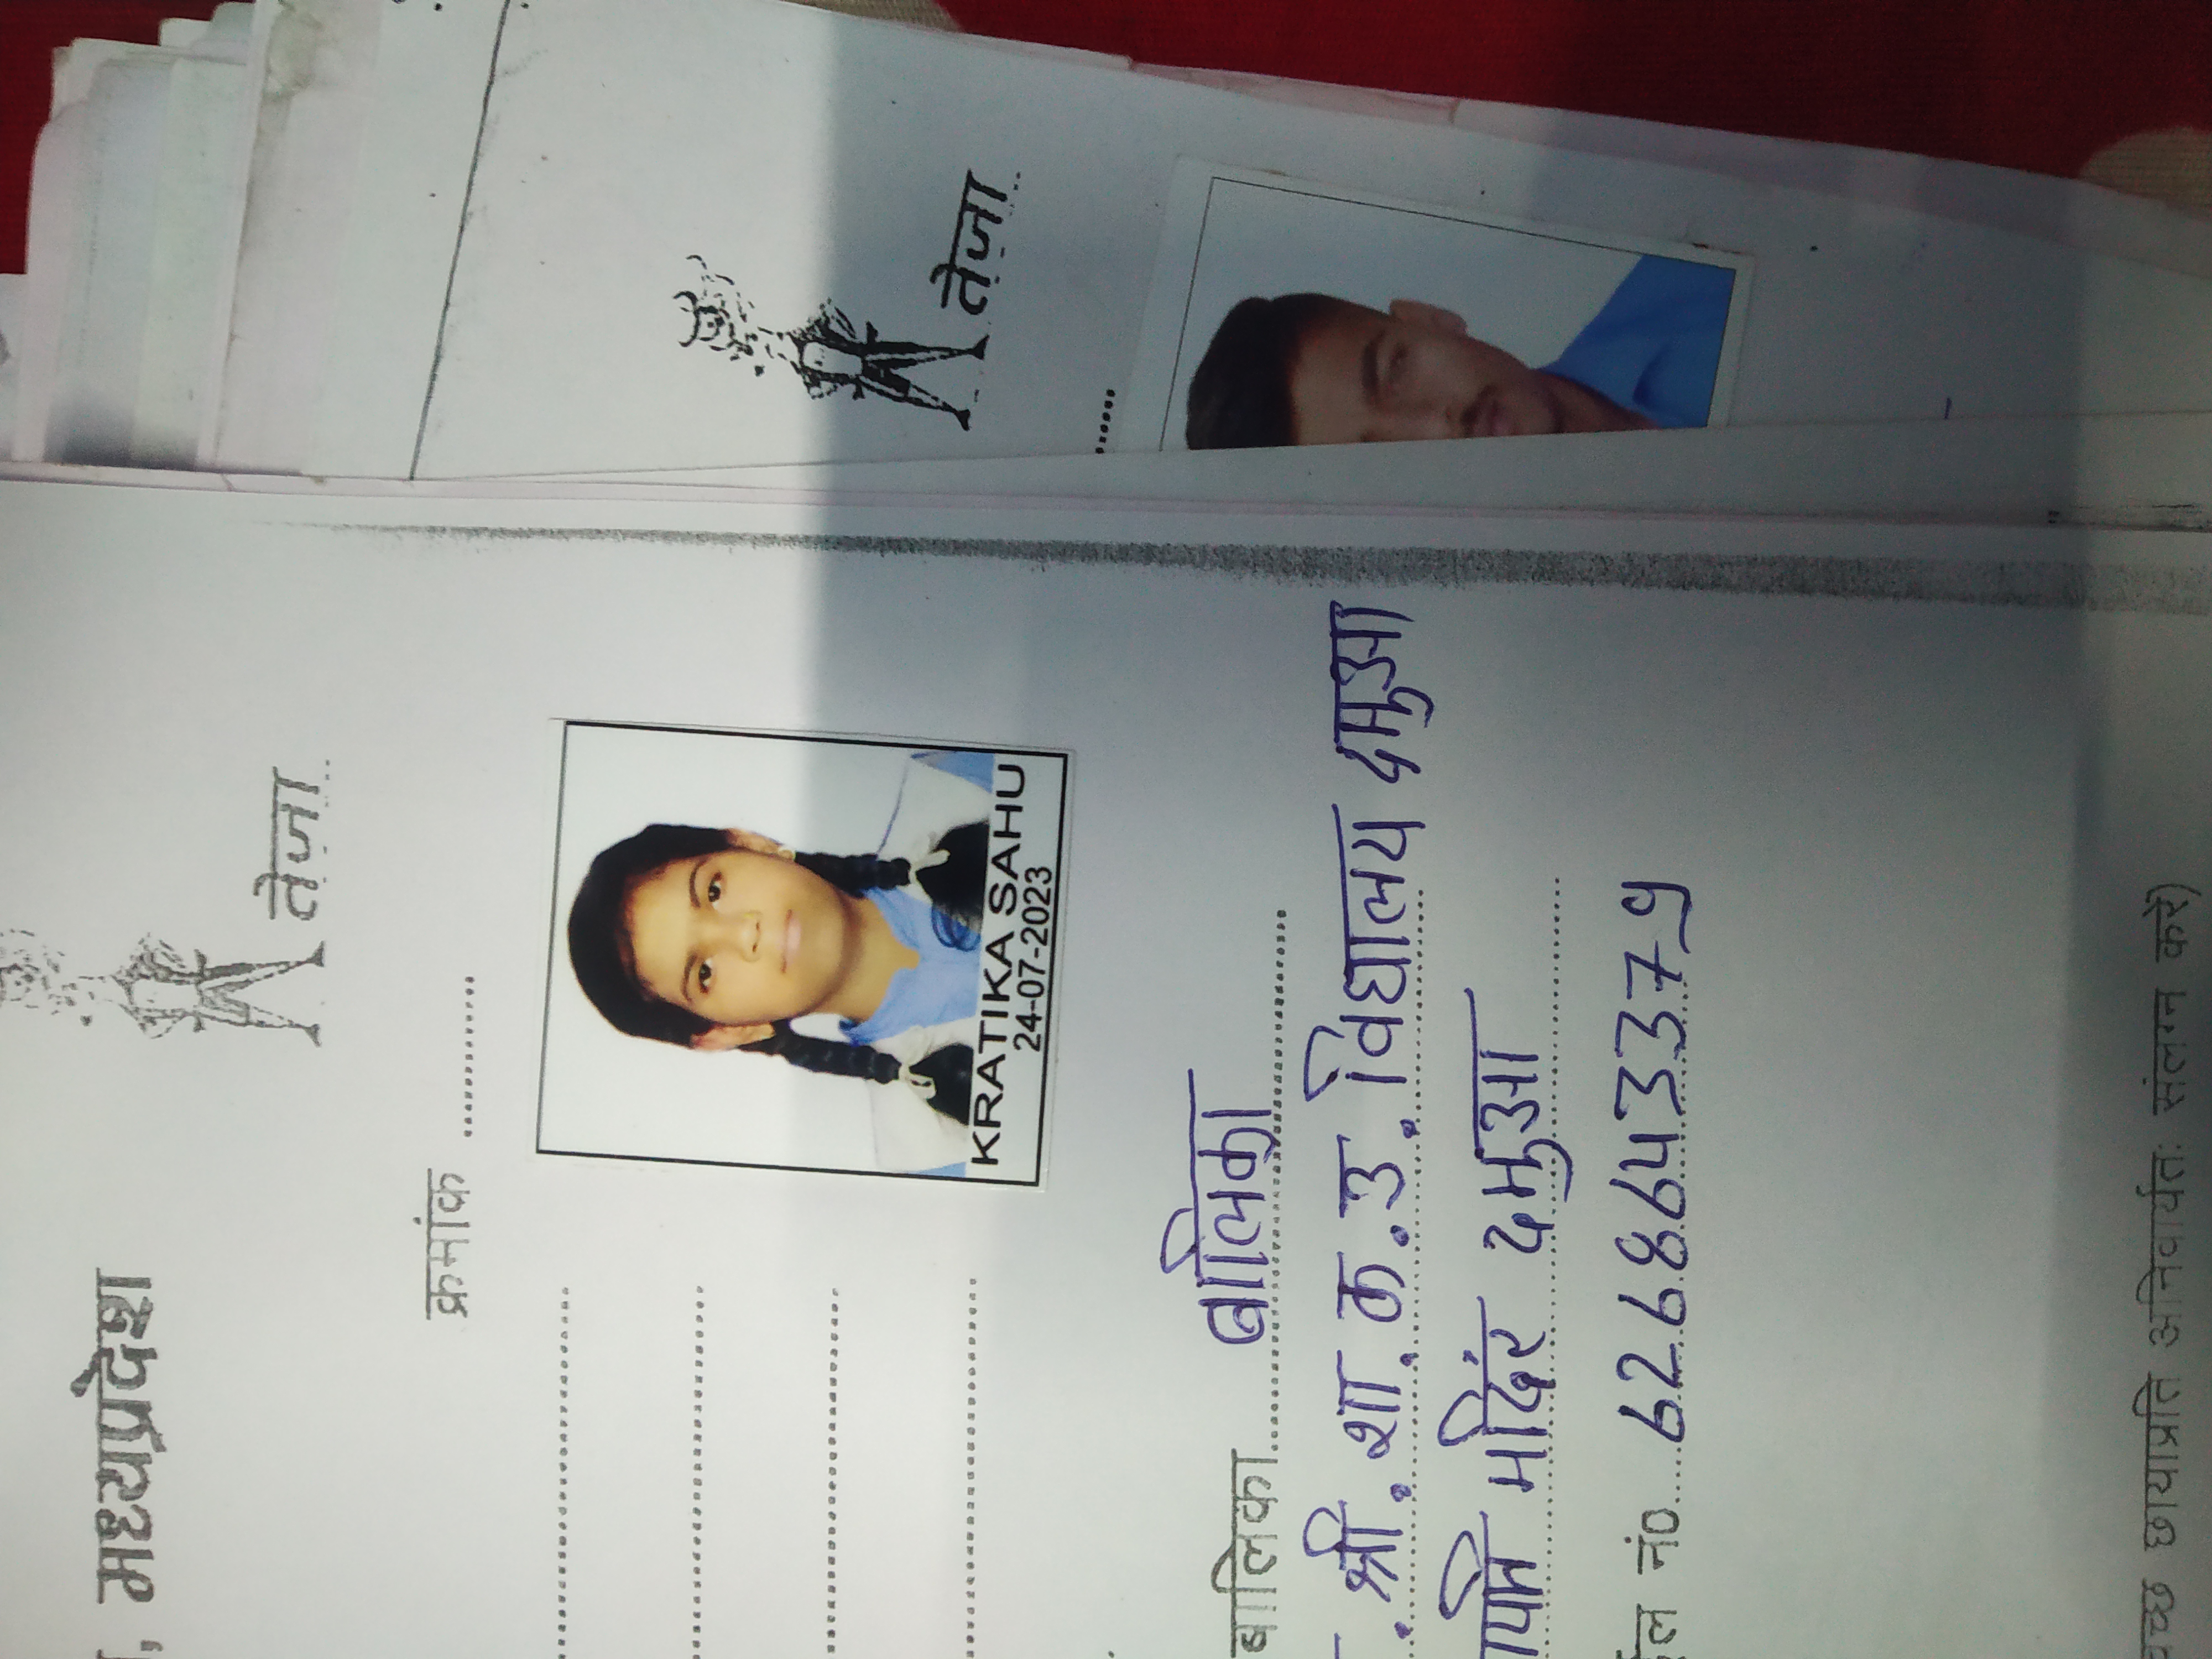 तेजा
, मध्यप्रदेश
तेजा
क्रमांक
KRATIKA SAHU
24-07-2023
बालिका बालिका
श्री. शा. क. उ. विद्यालय दमुआ
मंदिर दमुआ
नं० 6268643379
छायाप्रति अनिवार्यतः संलग्न करें)